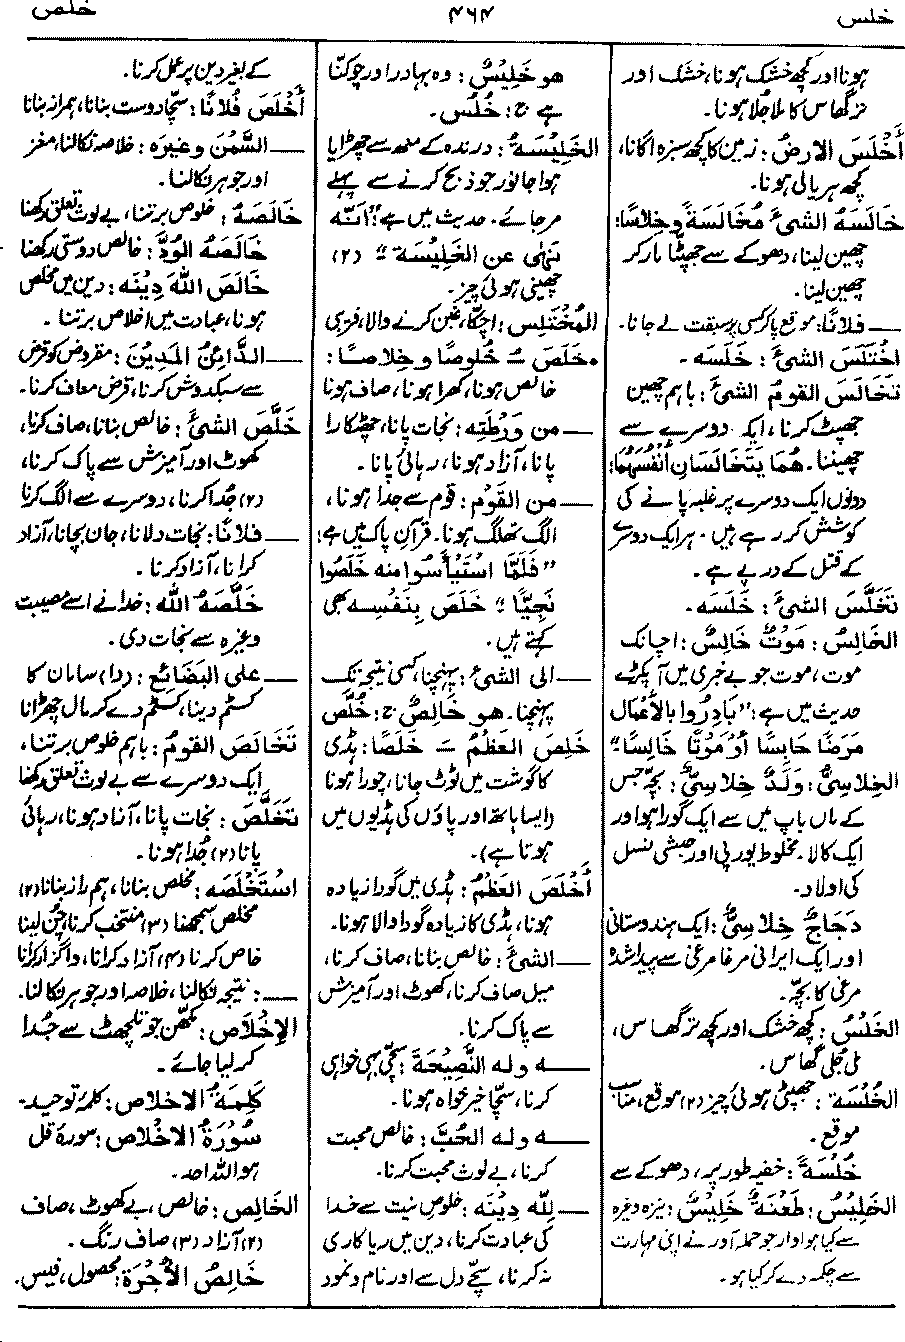 خلس
۴۶۴
خلص
ہونا اور کچھ خشک ہونا، خشک اور
تر گھاس کا ملا جلا ہونا۔
أَخْلَسَ الارضُ: زمین کا کچھ سبزہ اگانا،
کچھ ہریالی ہونا۔
خَالَسَهُ الشیءَ مُخَالَسَةً وخِلاسًا:
چھین لینا، دھوکے سے جھپٹا مار کر
چھین لینا۔
— فلانًا: موقع پاکر کسی پر سبقت لے جانا۔
اخْتَلَسَ الشیءَ: خَلَسَه ۔
تَخَالَسَ القومُ الشیءَ: باہم چھین
جھپٹ کرنا، ایک دوسرے سے
چھیننا۔ هُمَا يَتَخَالَسَانِ أَنْفُسَهُمَا:
دونوں ایک دوسرے پر غلبہ پانے کی
کوشش کر رہے ہیں۔ ہر ایک دوسرے
کے قتل کے درپے ہے۔
تَخَلَّسَ الشیءَ: خَلَسَه۔
الخَالِسُ: مَوْتٌ خَالِسٌ: اچانک
موت، موت جو بے خبری میں آپکڑے
حدیث میں ہے: "بَادِرُوا بِالأَعْمَالِ
مَرَضًا حَابِسًا أَوْ مَوْتًا خَالِسًا"
الخِلاسِیُّ: وَلَدٌ خِلاسِیٌّ: بچہ جس
کے ماں باپ میں سے ایک گورا ہو اور
ایک کالا۔ مخلوط یورپی اور حبشی نسل
کی اولاد۔
دَجَاجٌ خِلاسِیٌّ: ایک ہندوستانی
اور ایک ایرانی مرغا مرغی سے پیدا شدہ
مرغی کا بچہ۔
الخَلْسُ: کچھ خشک اور کچھ تر گھاس،
ملی جلی گھاس۔
الخُلْسَة: جھپٹی ہوئی چیز (۲) موقع، مناسب
موقع۔
خُلْسَةً: خفیہ طور پر، دھوکے سے
الخَلِیْسُ: طَعْنَةٌ خَلِیْسٌ: نیزہ وغیرہ
سے کیا ہوا وار جو حملہ آور نے اپنی مہارت
سے چکمہ دے کر کیا ہو۔
هو خَلِیْسٌ: وہ بہادر اور چوکنّا
ہے ج: خُلُس۔
الخَلِیْسَةُ: درندہ کے منھ سے چھڑایا
ہوا جانور جو ذبح کرنے سے پہلے
مر جائے۔ حدیث میں ہے: "أنّه
نَهٰی عن الخَلِیْسَة" (۲)
چھینی ہوئی چیز۔
المُخْتَلِس: اچکّا، غبن کرنے والا، فریبی
خَلَصَ ـُ خُلُوصًا وخِلاصًا:
خالص ہونا، کھرا ہونا، صاف ہونا
— من وَرْطَتِه: نجات پانا، چھٹکارا
پانا، آزاد ہونا، رہائی پانا۔
— من القَوْم: قوم سے جدا ہونا،
الگ تھلگ ہونا۔ قرآن پاک میں ہے:
"فَلَمَّا اسْتَيْأَسُوا منه خَلَصُوا
نَجِيًّا" خَلَصَ بِنَفْسِه بھی
کہتے ہیں۔
— الی الشیءِ: پہنچنا، کسی نتیجہ تک
پہنچنا۔ هو خَالِصٌ ج: خُلَّص
خَلِصَ العَظْمُ ـَ خَلَصًا: ہڈی
کا گوشت میں ٹوٹ جانا، چورا ہونا
(ایسا ہاتھ اور پاؤں کی ہڈیوں میں
ہوتا ہے)۔
أَخْلَصَ العَظْمُ: ہڈی میں گودا زیادہ
ہونا، ہڈی کا زیادہ گودا والا ہونا۔
— الشیءَ: خالص بنانا، صاف کرنا،
میل صاف کرنا، کھوٹ اور آمیزش
سے پاک کرنا۔
— ه وله النَّصِیْحَةَ: سچی بہی خواہی
کرنا، سچا خیر خواہ ہونا۔
— ه وله الحُبَّ: خالص محبت
کرنا، بے لوث محبت کرنا۔
— لِلّٰهِ دِیْنَه: خلوص نیت سے خدا
کی عبادت کرنا، دین میں ریاکاری
نہ کرنا، سچے دل سے اور نام و نمود
کے بغیر دین پر عمل کرنا۔
أَخْلَصَ فُلانًا: سچا دوست بنانا، ہمراز بنانا
— السَّمْنَ وغیرَه: خلاصہ نکالنا، مغز
اور جوہر نکالنا۔
خَالَصَهُ: خلوص برتنا، بے لوث تعلق رکھنا
خَالَصَهُ الوُدَّ: خالص دوستی رکھنا
خَالَصَ اللّٰهَ دِیْنَه: دین میں مخلص
ہونا، عبادت میں اخلاص برتنا۔
— الدَّائِنُ المَدِیْنَ: مقروض کو قرض
سے سبکدوش کرنا، قرض معاف کرنا۔
خَلَّصَ الشیءَ: خالص بنانا، صاف کرنا،
کھوٹ اور آمیزش سے پاک کرنا،
(۲) جُدا کرنا، دوسرے سے الگ کرنا
— فلانًا: نجات دلانا، جان بچانا، آزاد
کرانا، آزاد کرنا۔
خَلَّصَهُ اللّٰه: خدا نے اسے مصیبت
وغیرہ سے نجات دی۔
— علی البَضَائِعِ: (دا) سامان کا
کسٹم دینا، کسٹم دے کر مال چھڑانا
تَخَالَصَ القومُ: باہم خلوص برتنا،
ایک دوسرے سے بے لوث تعلق رکھنا
تَخَلَّصَ: نجات پانا، آزاد ہونا، رہائی
پانا (۲) جُدا ہونا۔
اسْتَخْلَصَه: مخلص بنانا، ہم راز بنانا (۲)
مخلص سمجھنا (۳) منتخب کرنا، چن لینا
خاص کرنا (۴) آزاد کرانا، واگزار کرانا
—: نتیجہ نکالنا، خلاصہ اور جوہر نکالنا۔
الإخْلاص: مکھن جو تلچھٹ سے جُدا
کر لیا جائے۔
كَلِمَةُ الاخلاص: کلمۂ توحید۔
سُورَةُ الاخْلاص: سورۃ قل
ہو اللہ احد۔
الخَالِص: خالص، بے کھوٹ، صاف
(۲) آزاد (۳) صاف رنگ۔
خَالِصُ الأُجْرَةِ: محصول، فیس۔